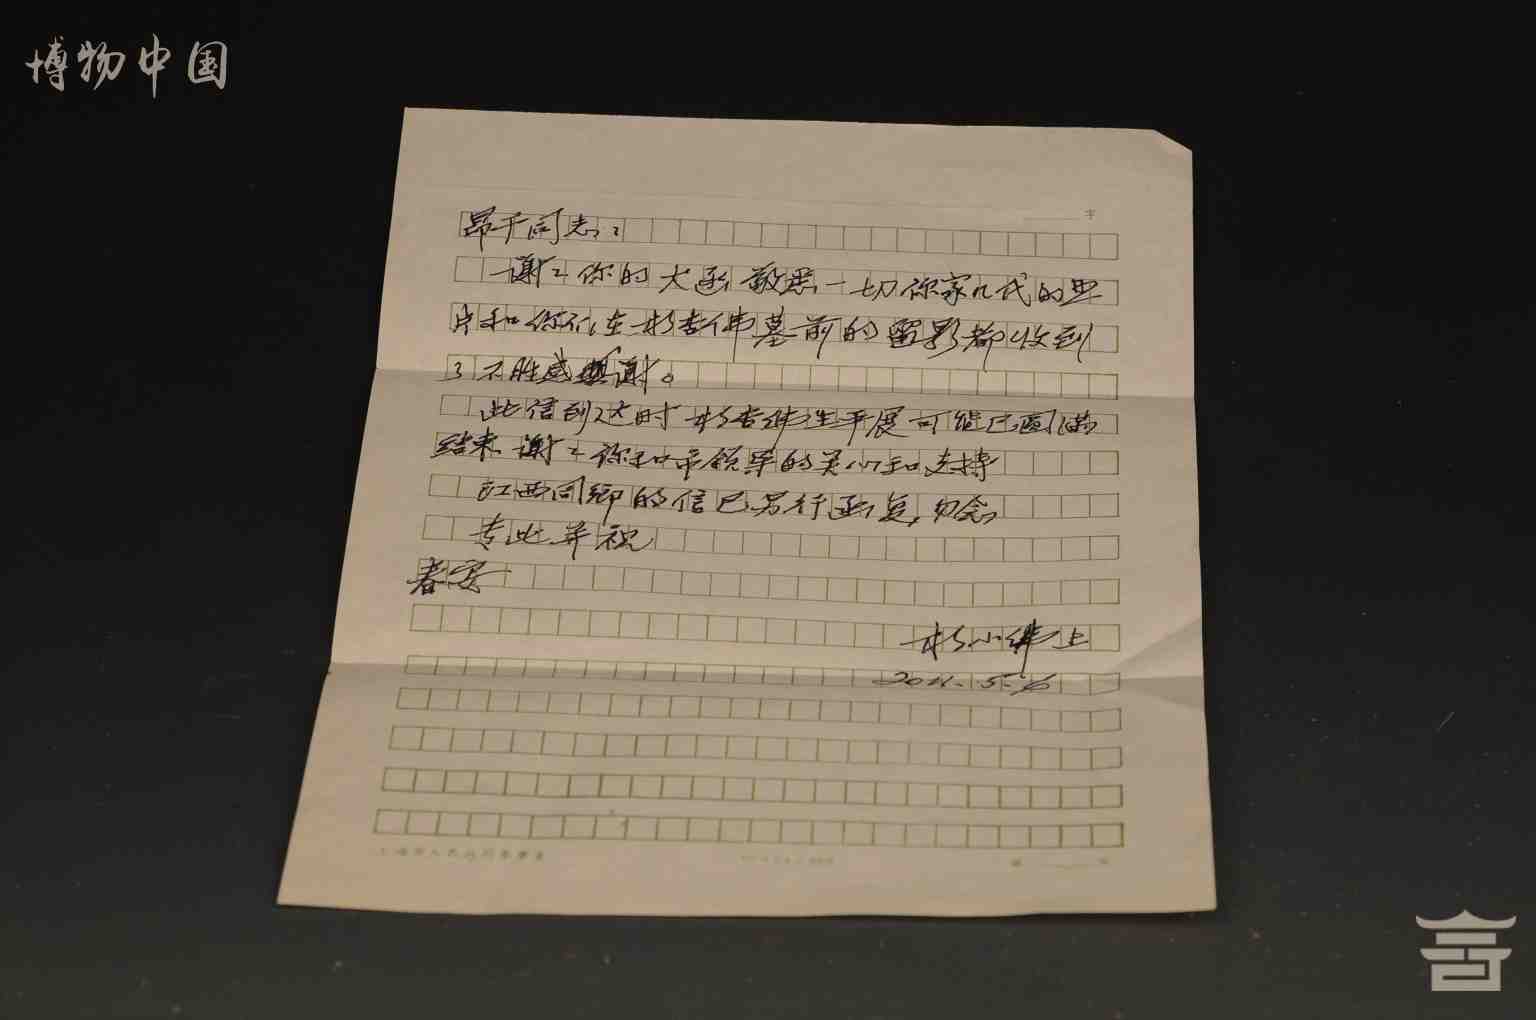 博物中国
字
昂千同志：
谢谢你的大函敬悉一切你家几代的照
片和你们在杨杏佛墓前的留影都收到
了不胜感谢。
此信到达时杨杏佛生平展可能已圆满
结束.谢谢你和市领导的关心和支持
江西同乡的信已另行函复,勿念
专此并祝
春安
杨小佛上
5.